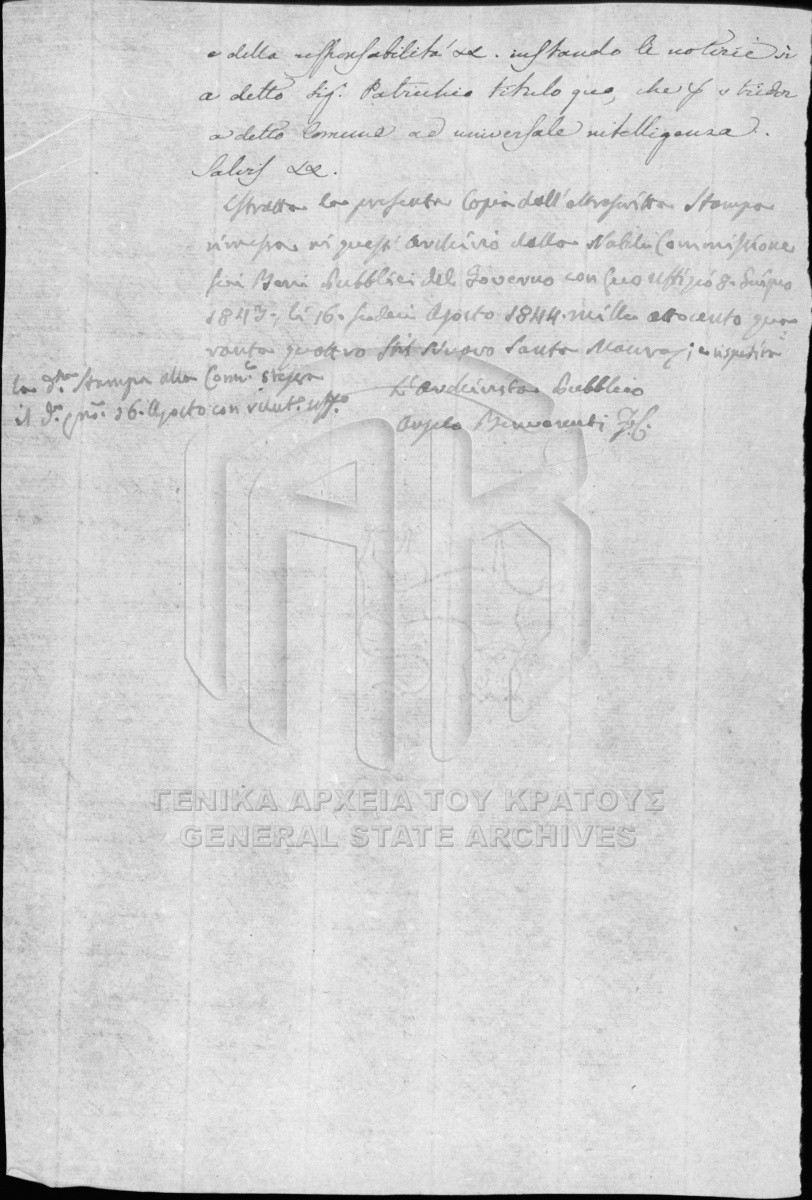 e della responsabilità &&. instando le notizie si
a detto Sig. Patrichio titulo quo, che
a detto Comune ad universale intelligenza.
Salvis &&.
Estratta la presente Copia dall'oltrescritta Stampa
rimessa in quest' Archivio dalla Nobile Commissione
sui Beni Pubblici del Governo con suo Uffizio 8. Giugno
1843, li 16. sedeci Agosto 1844. mille ottocento qua
ranta quattro Stil Nuovo Santa Maura; e rispedita
la d.ta Stampa alla Comm.e stessa
il d.o 16. Agosto con
L'Archivista Pubblico
Angelo Benvenuti
ΓΕΝΙΚΑ ΑΡΧΕΙΑ ΤΟΥ ΚΡΑΤΟΥΣ
GENERAL STATE ARCHIVES